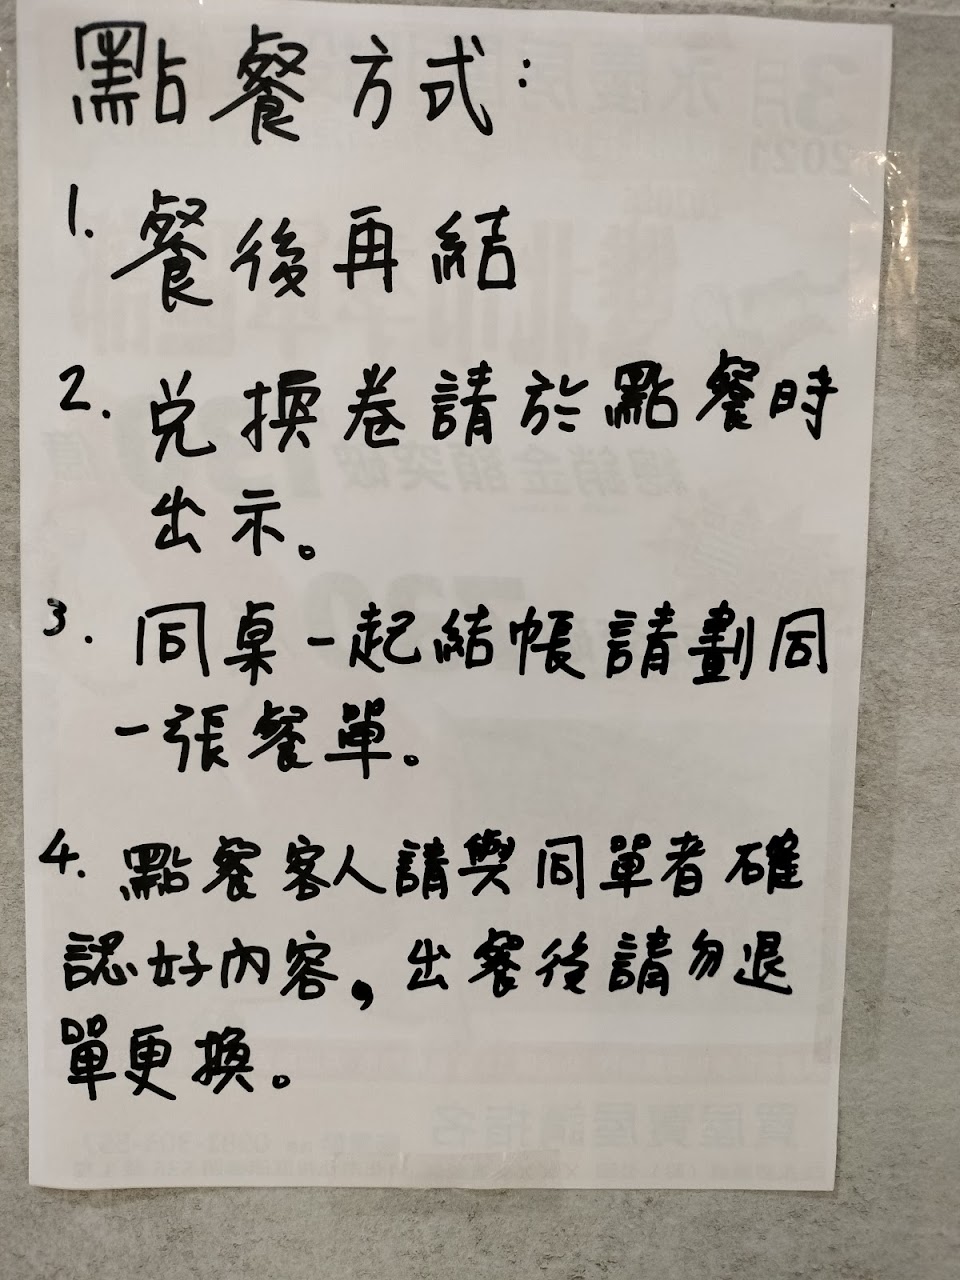 點餐方式:
1. 餐後再結
2. 兌換卷請於點餐時
出示。
3. 同桌一起結帳請劃同
一張餐單。
4. 點餐客人請與同單者確
認好內容,出餐後請勿退
單更換。